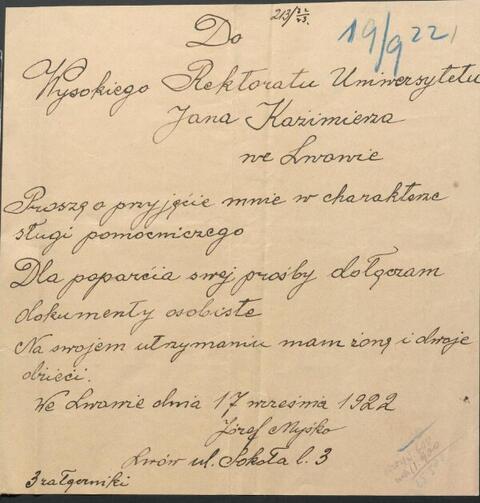 213/22
23.
19/9 22
Do
Wysokiego Rektoratu Uniwersytetu
Jana Kazimierza
we Lwowie
Proszę o przyjęcie mnie w charakterze
sługi pomocniczego
Dla poparcia swej prośby dołączam
dokumenty osobiste
Na swojem utrzymaniu mam żonę i dwoje
dzieci.
We Lwowie dnia 17 września 1922
Józef Myśko
Lwów ul. Sokoła l. 3
3 załączniki